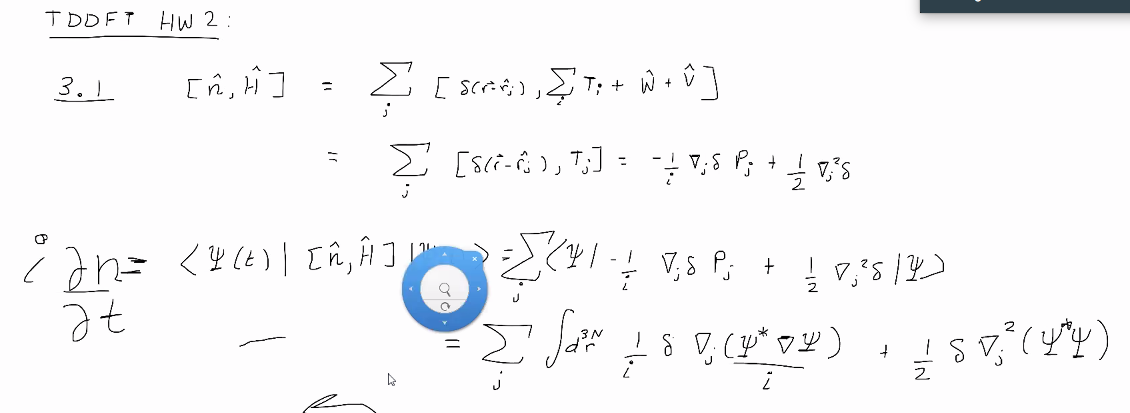 TDDFT HW2:
3.1 [n̂, Ĥ] = ∑_j [δ(r⃗-r̂_j), ∑_i T_i + Ŵ + V̂]
= ∑_j [δ(r⃗-r̂_j), T_j] = -1/i ∇_jδ P_j + 1/2 ∇_j²δ
i ∂n/∂t = ⟨Ψ(t)| [n̂, Ĥ] |Ψ ⟩ = ∑_j ⟨Ψ| -1/i ∇_jδ P_j + 1/2 ∇_j²δ |Ψ⟩
= ∑_j ∫d³ᴺr 1/i δ ∇_j (Ψ* ∇Ψ)/i + 1/2 δ ∇_j² (Ψ*Ψ)